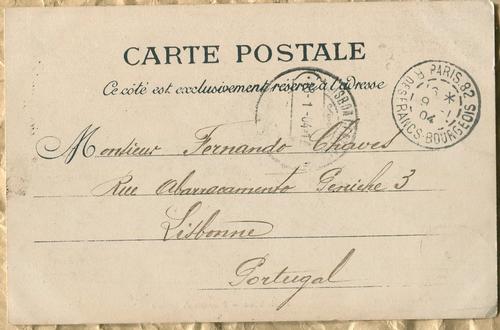 CARTE POSTALE
Ce côté est exclusivement réservé à l'adresse
PARIS 82
R. DES FRANCS-BOURGEOIS
9
04
LISBOA
-1-04
Monsieur Fernando Chaves
Rua Abarracamento Peniche 3
Lisbonne
Portugal